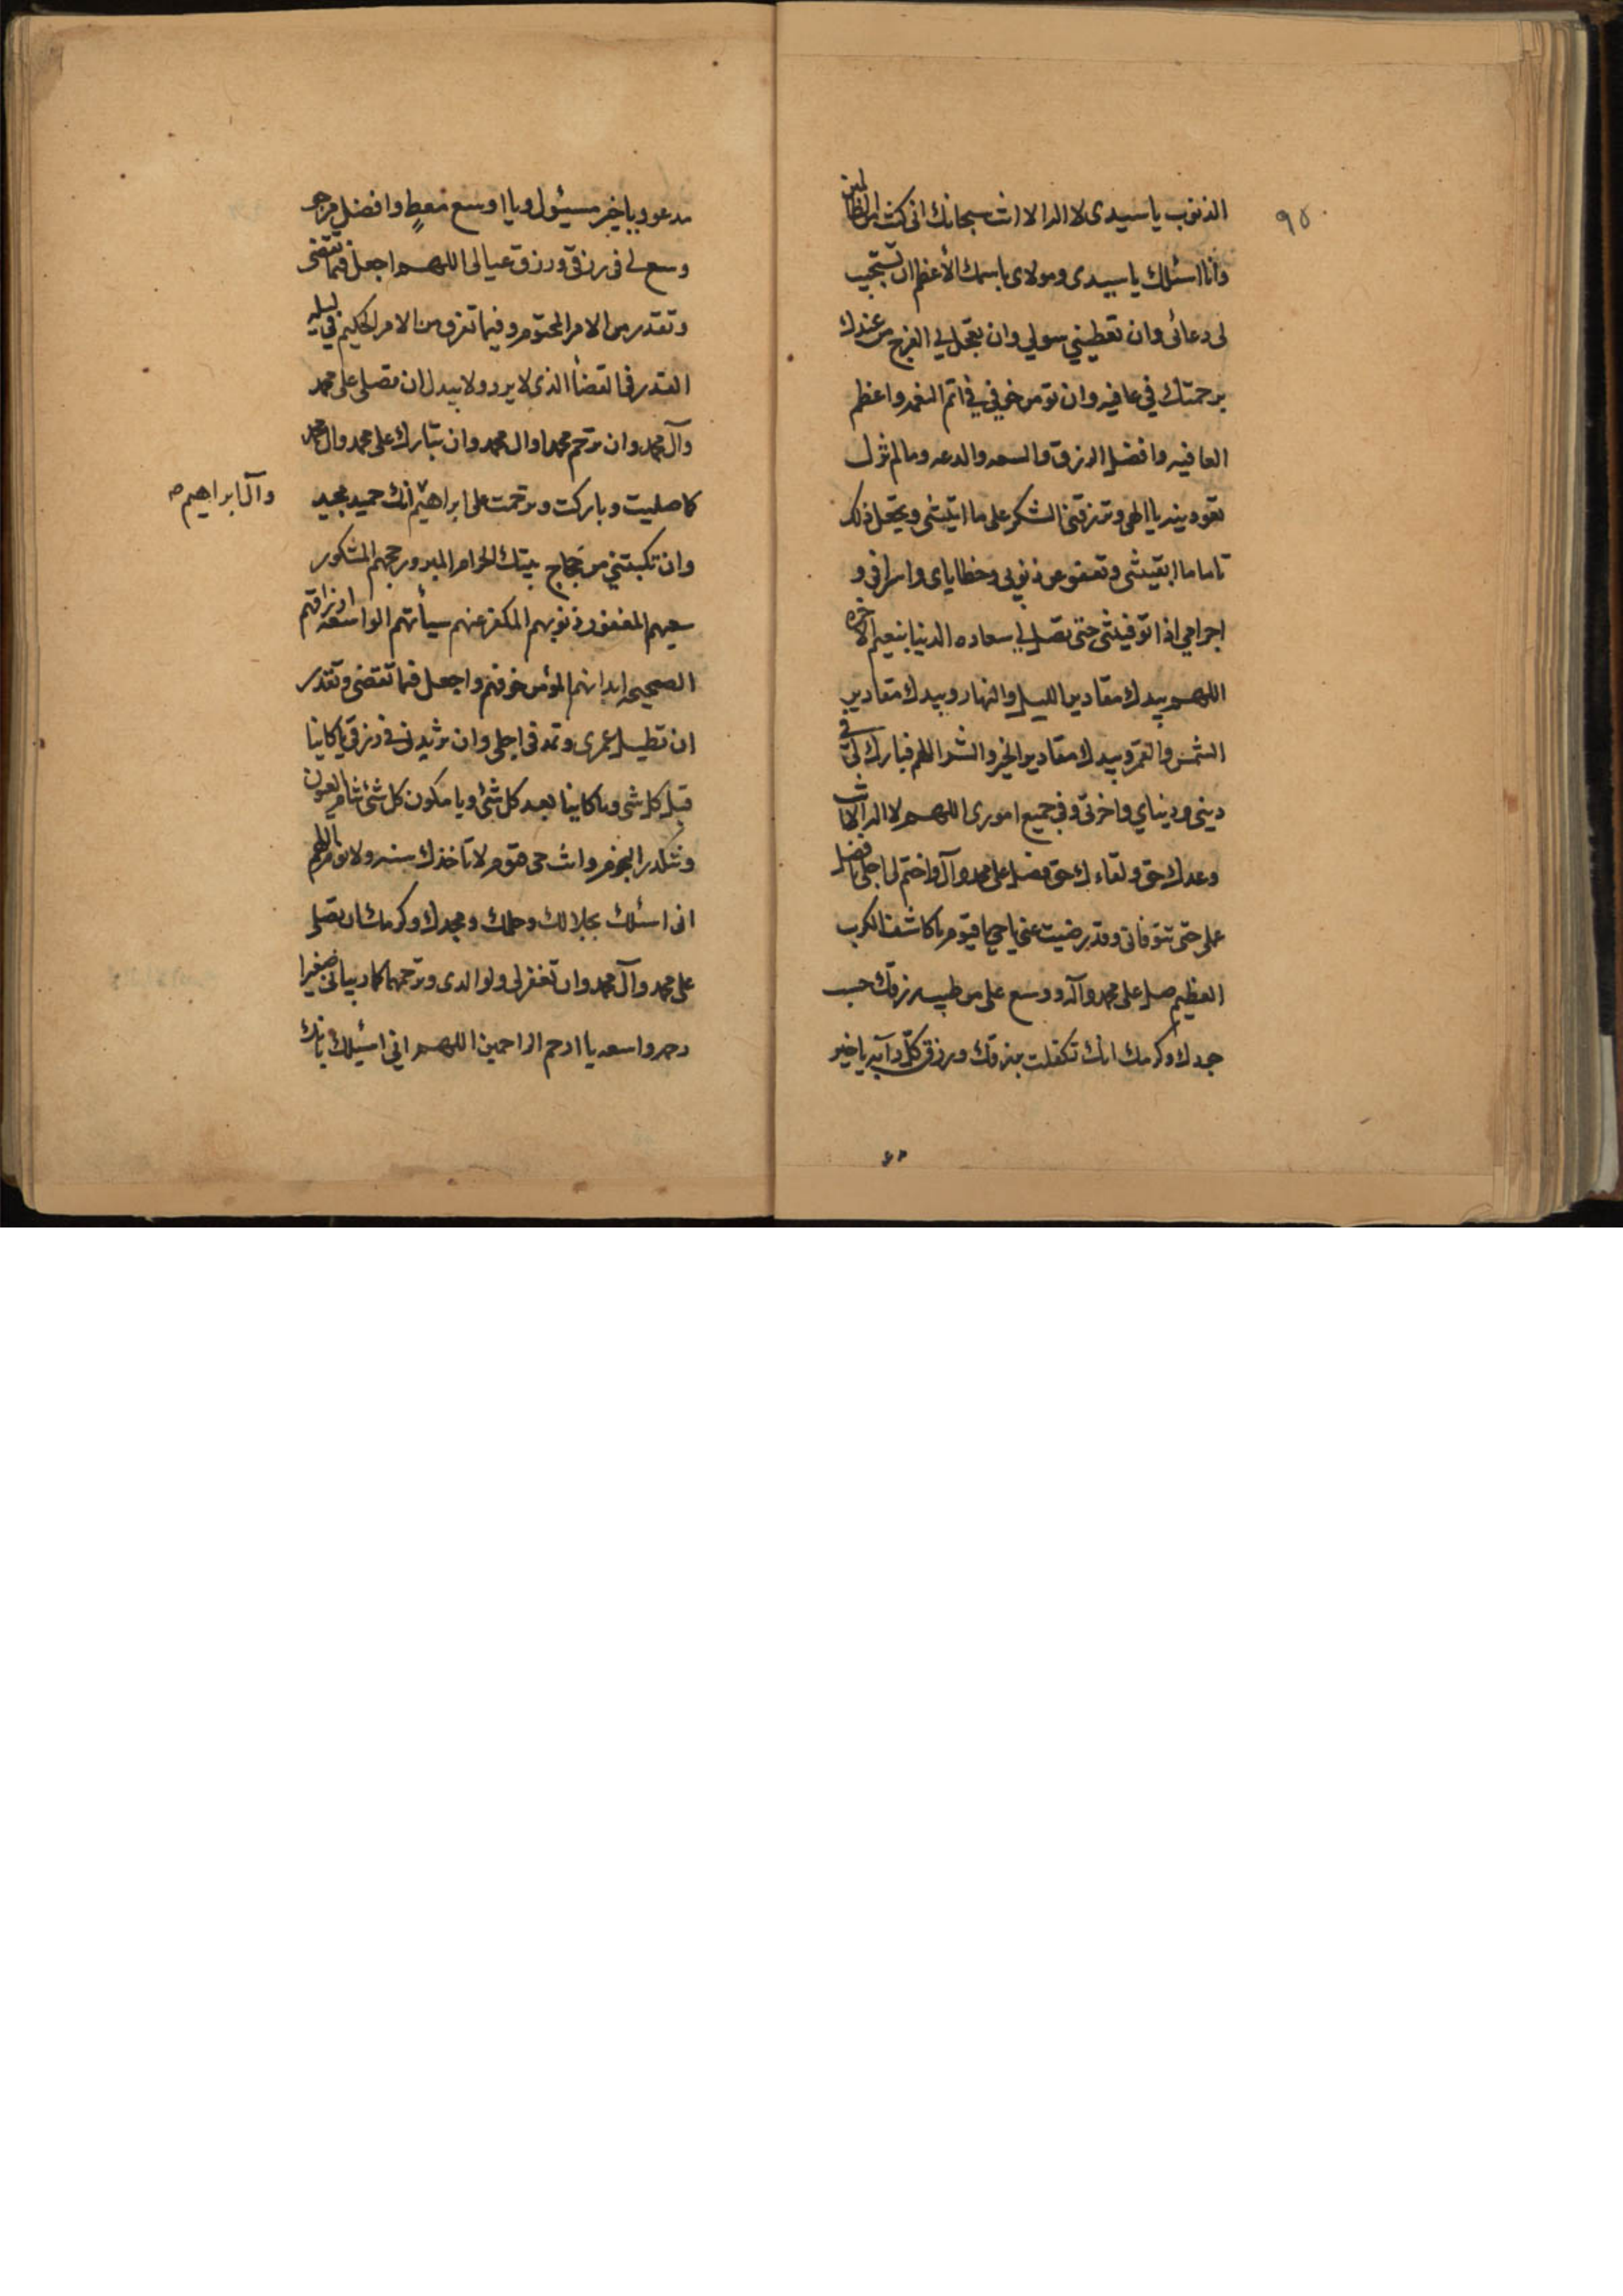 ٩٥
الذنوب يا سيدى لا اله الا انت سبحانك انى كنت من الظالمين
وأنا اسئلك يا سيدى ومولاى باسمك الأعظم ان تستجيب
لى دعائى وان تعطينى سولي وان تعجل لي الفرج من عندك
برحمتك في عافيه وان تومن خوفي في اتم النعمه واعظم
العافيه وافضل الرزق والسعه والدعه وما لم تزل
تعودينه يا الهى وترزقنى الشكر على ما اتيتنى وتجعل ذلك
تاما ما ابقيتنى وتعفو عن ذنوبى وخطاياى واسرافى و
اجرامي اذا توفيتنى حتى تصل لي سعاده الدنيا بنعيم الاخره
اللهم بيدك مقادير الليل والنهار وبيدك مقادير
الشمس والقمر وبيدك مقادير الخير والشر اللهم فبارك لى في
دينى ودنياي واخرتى وفى جميع امورى اللهم لا اله الا انت
وعدك حق ولقاءك حق فصل على محمد وآل واختم لى اجلى بافضل
عملى حتى تتوفانى وقد رضيت عنى يا حي يا قيوم يا كاشف الكرب
العظيم صل على محمد وآله ووسع على من طيب رزقك حسب
جودك وكرمك انك تكفلت برزقك ورزق كل دآبه يا خير
مدعو ويا خير مسئول ويا اوسع معطٍ وافضل مرجو
وسع لى فى رزقى ورزق عيالى اللهم اجعل فيما تقضى
وتقدر من الامر المحتوم وفيما تفرق من الامر الحكيم في ليله
القدر فى القضاء الذى لا يرد ولا يبدل ان تصلى على محمد
وآل محمد وان ترحم محمدا وال محمد وان تبارك على محمد وال محمد
كما صليت وباركت وترحمت على ابراهيم انك حميد مجيد
وآل ابراهيم صح
وان تكتبنى من حجاج بيتك الحرام المبرور حجهم المشكور
سعيهم المغفور ذنوبهم المكفر عنهم سيأتهم الواسعه ارزاقهم
الصحيحه ابدانهم المؤمن خوفهم واجعل فيما تقضى وتقدر
ان تطيل عمرى وتمد فى اجلى وان تزيد فى رزقى يا كاينا
قبل كل شى ويا كاينا بعد كل شئ ويا مكون كل شئ تنام العيون
وتنكدر النجوم وانت حى قيوم لا تاخذك سنه ولا نوم اللهم
انى اسئلك بجلالك وحلمك ومجدك وكرمك ان تصلى
على محمد وآل محمد وان تغفر لى ولوالدى وترحمهما كما ربيانى صغيرا
رحمه واسعه يا ارحم الراحمين اللهم انى اسئلك بانك